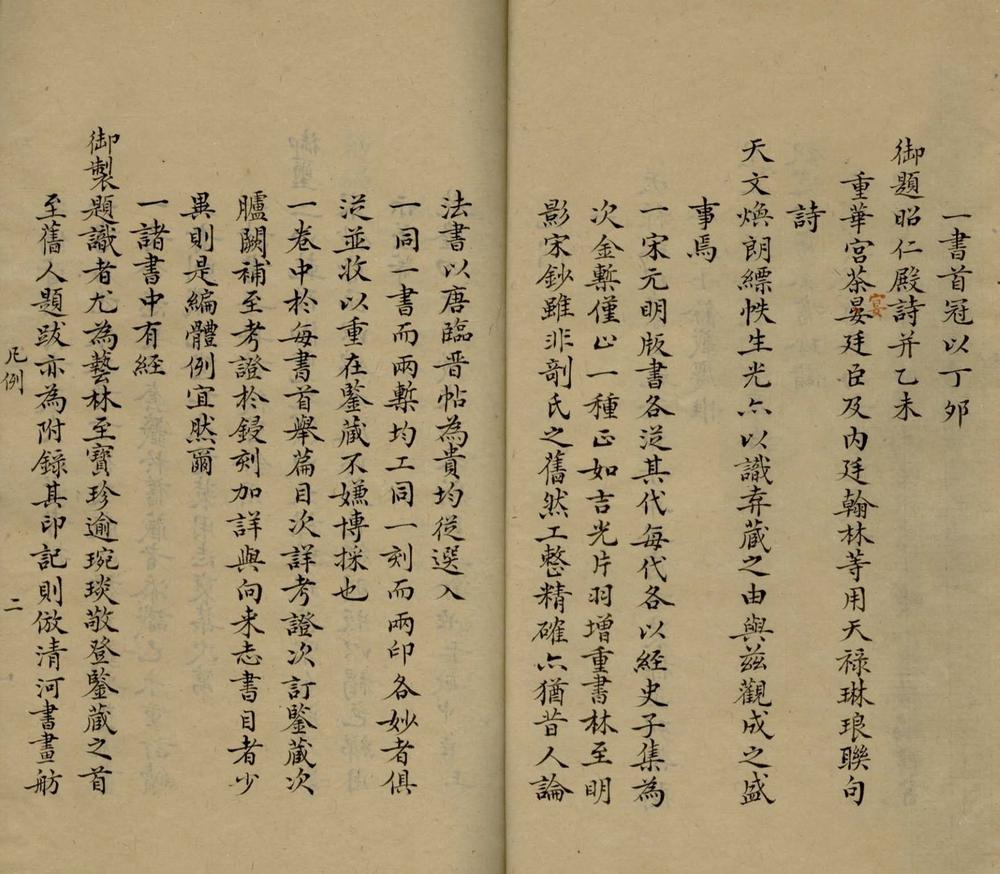 一書首冠以丁夘
御題昭仁殿詩并乙未
重華宮茶晏廷臣及内廷翰林等用天禄琳琅聯句
宴
詩
天文煥朗縹帙生光亦以識弆藏之由與兹觀成之盛
事焉
一宋元明版書各從其代每代各以経史子集為
次金槧僅止一種正如吉光片羽增重書林至明
影宋鈔雖非剞氏之舊然工整精確亦猶昔人論
法書以唐臨晋帖為貴均從選入
一同一書而兩槧均工同一刻而兩印各妙者俱
從並收以重在鑒藏不嫌博採也
一卷中於每書首舉篇目次詳考證次訂鑒藏次
臚闕補至考證於鋟刻加詳與向来志書目者少
異則是編體例宜然爾
一諸書中有経
御製題識者尤為藝林至寶珍逾琬琰敬登鑒藏之首
至舊人題跋亦為附錄其印記則倣清河書畫舫
凡例
二